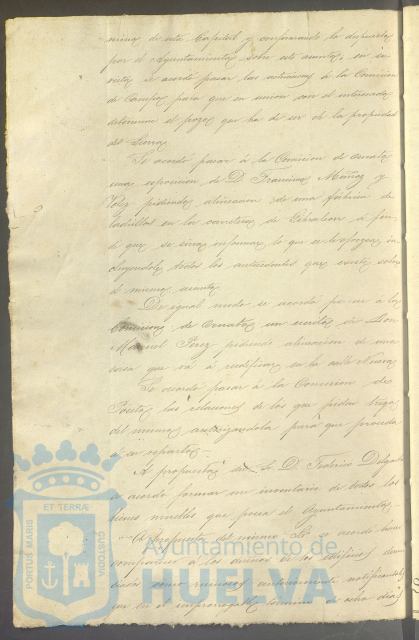 de esta Capital y conformando lo dispuesto
por el Ayuntamiento sobre este asunto, en su
vista se acordó pasar las actuaciones á la Comision
de Campos para que en union con el interesado
determine el pozo que ha de ser de la propiedad
del
Se acordó pasar á la Comision de Ornato
una esposicion de D. Francisco Muñoz y
pidiendo alineacion de una fábrica de
ladrillos en la carretera de Gibraleon á fin
de que se sirva informar lo que se le ofrezca
todos los antecedentes que sobre
el mismo asunto.
De igual modo se acordó pasar á la
Comision de Ornato un escrito de Don
Manuel Perez pidiendo alineacion de una
casa que vá á reedificar en la calle Nueva
Se acordó pasar á la Comision de
las relaciones de los que piden trigo
del mismo autorizandola para que proceda
á su reparto.
A propuesta del Sr. D. Federico Delgado
se acordó formar un inventario de todos los
bienes muebles que posee el Ayuntamiento
A propuesta del mismo Sr. se acordó
á los de los edificios
como ruinosos
que en el improrrogable termino de ocho dias
PORTUS MARIS ET TERRÆ CUSTODIA
Ayuntamiento de
HUELVA